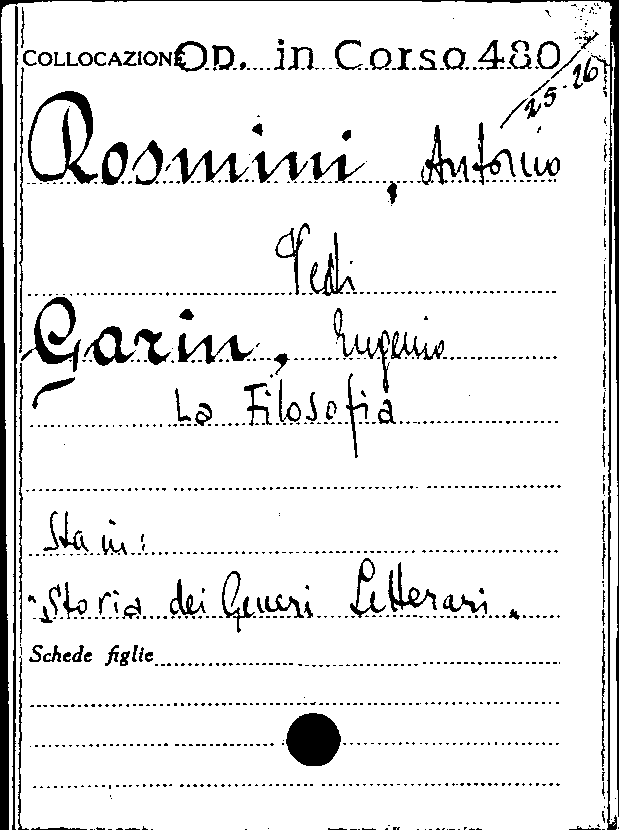 COLLOCAZIONE OD. in Corso 480
25-26
Rosmini, Antonio
Vedi
Garin, Eugenio
La Filosofia
Sta in:
"Storia dei Generi Letterari"
Schede figlie